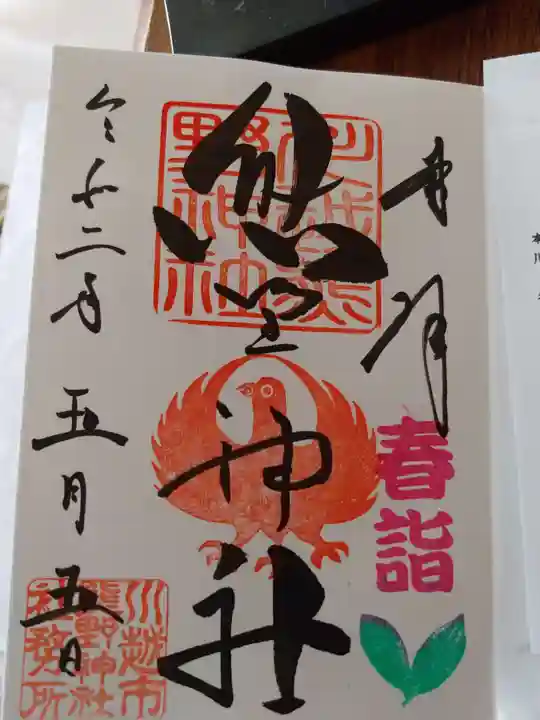 奉拝
春詣
川越熊野神社
熊野神社
令和二年五月五日
川越市
熊野神社
社務所